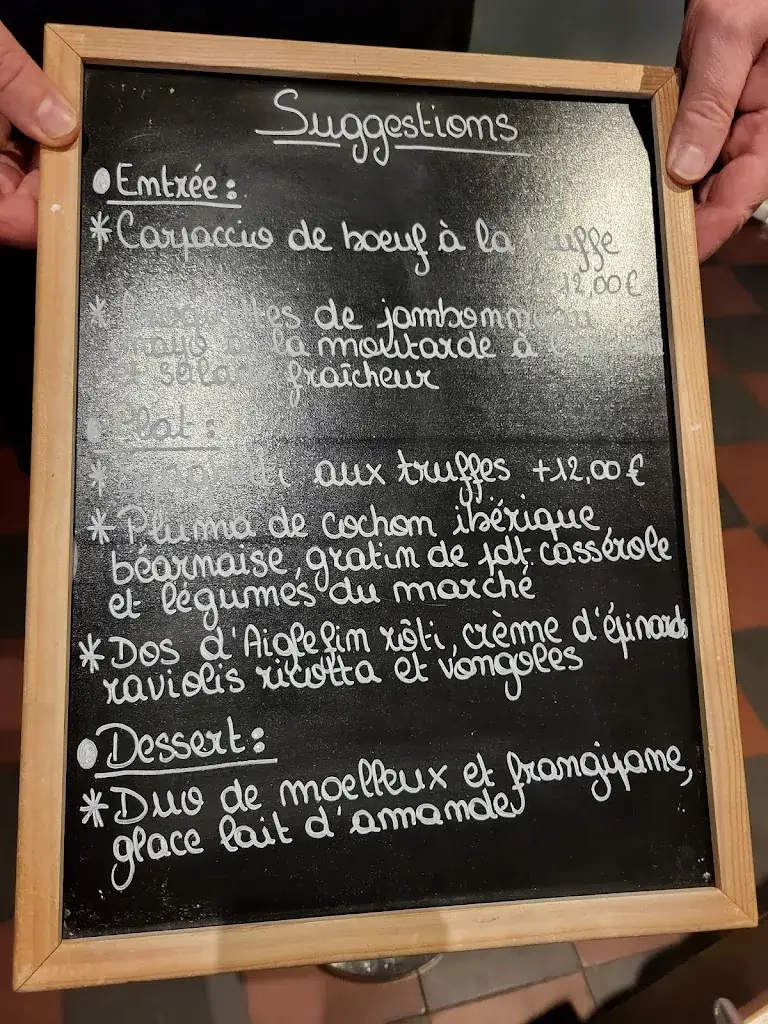 Suggestions
Entrée :
* Carpaccio de boeuf à la
12,00€
* de
à la moutarde à
fraîcheur
Plat :
* aux truffes +12,00€
* Pluma de cochon ibérique,
béarnaise, gratin de pdt cassérole
et légumes du marché
* Dos d'Aiglefin rôti, crème d'épinards
raviolis ricotta et vongoles
Dessert :
* Duo de moelleux et frangipane,
glace lait d'amandes